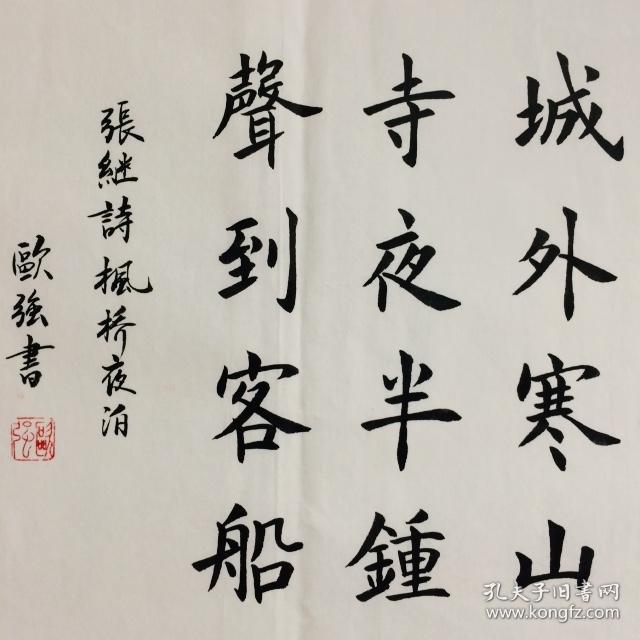 城外寒山
寺夜半鍾
聲到客船
張継詩楓桥夜泊
歐强書
歐强
孔夫子旧书网
www.kongfz.com